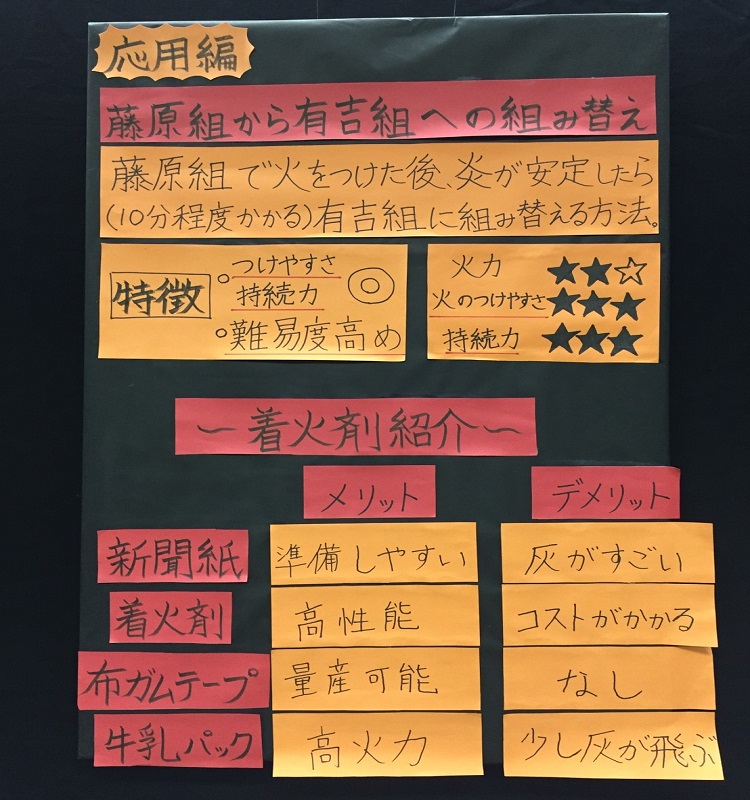 応用編
藤原組から有吉組への組み替え
藤原組で火をつけた後、炎が安定したら
(10分程度かかる)有吉組に組み替える方法。
特徴
○つけやすさ
持続力 ◎
○難易度高め
火力 ★★☆
火のつけやすさ ★★★
持続力 ★★★
〜着火剤紹介〜
メリット デメリット
新聞紙 準備しやすい 灰がすごい
着火剤 高性能 コストがかかる
布ガムテープ 量産可能 なし
牛乳パック 高火力 少し灰が飛ぶ